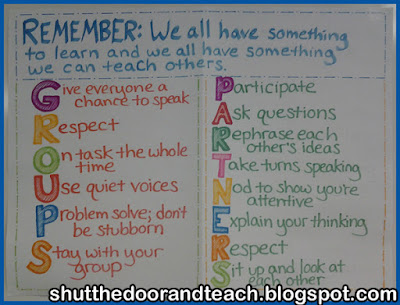 REMEMBER: We all have something
to learn and we all have something
we can teach others.
Give everyone a
chance to speak
Respect
On task the whole
time
Use quiet voices
Problem solve; don't
be stubborn
Stay with your
group
Participate
Ask questions
Rephrase each
other's ideas
Take turns speaking
Nod to show you're
attentive
Explain your thinking
Respect
Sit up and look at
each other
shutthedoorandteach.blogspot.com